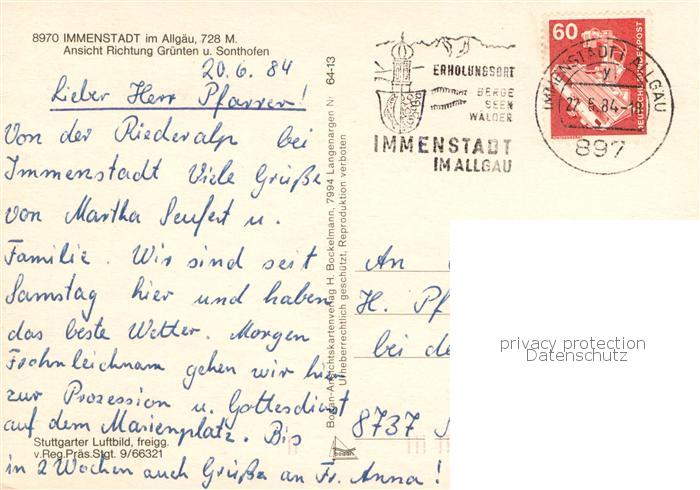 8970 IMMENSTADT im Allgäu, 728 M.
Ansicht Richtung Grünten u. Sonthofen
20.6.84
Lieber Herr Pfarrer!
Von der Riederalp bei
Immenstadt Viele Grüße
von Martha Seufert u.
Familie. Wir sind seit
Samstag hier und haben
das beste Wetter. Morgen
Frohnleichnam gehen wir hier
zur Prozession u. Gottesdienst
auf dem Marienplatz. Bis
in 2 Wochen auch Grüße an Fr. Anna!
Stuttgarter Luftbild, freigg.
v.Reg.Präs.Stgt. 9/66321
64-13
Ansichtskartenverlag H. Bockelmann, 7994 Langenargen Nr.
Urheberrechtlich geschützt, Reproduktion verboten
ERHOLUNGSORT
BERGE
SEEN
WÄLDER
IMMENSTADT
IM ALLGÄU
60
DEUTSCHE BUNDESPOST
IMMENSTADT i ALLGÄU
yl
22.6.84-18
897
An
H. Pf
bei de
8737 S
privacy protection
Datenschutz